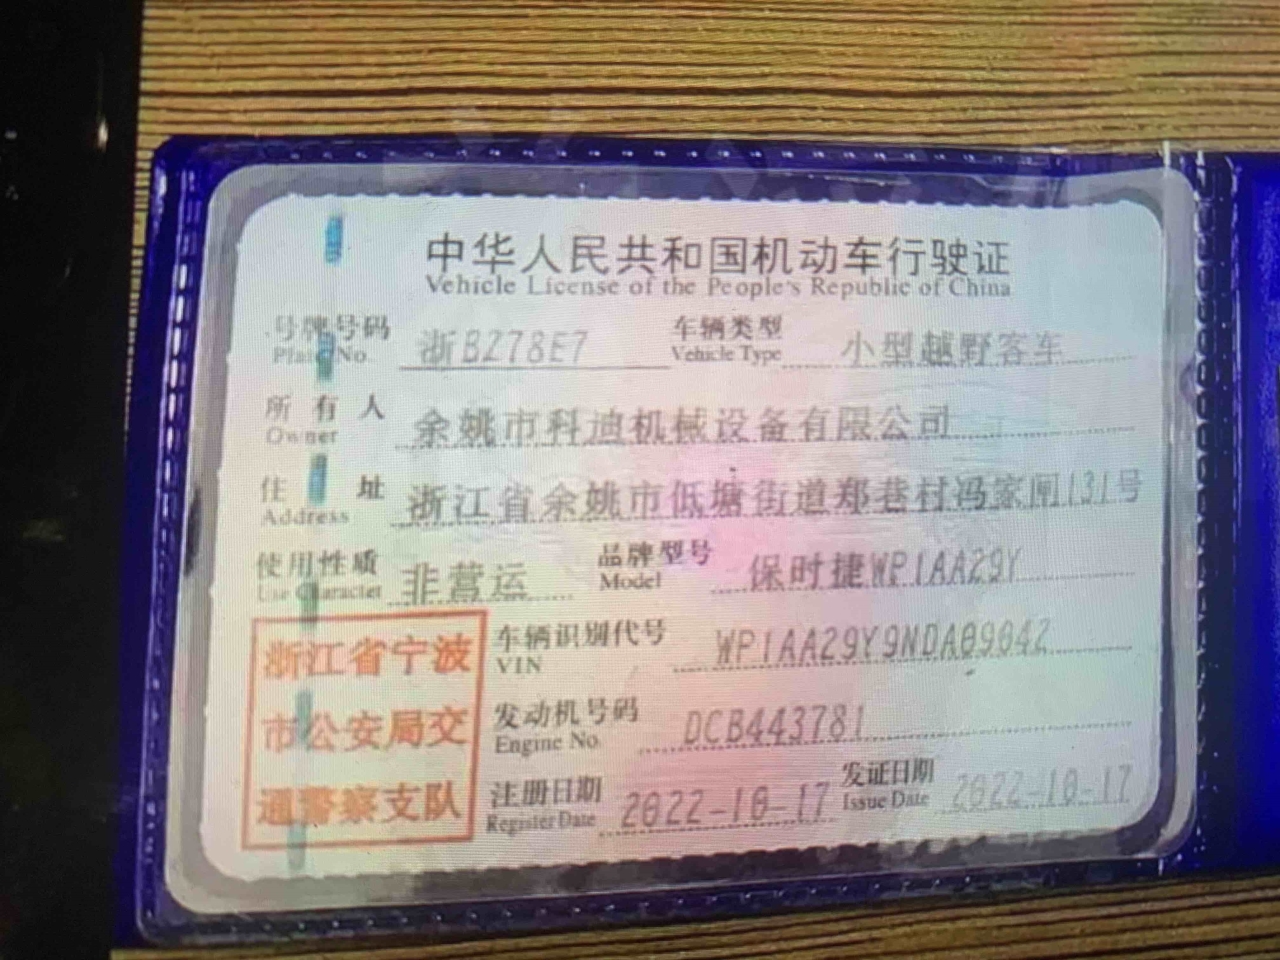 中华人民共和国机动车行驶证
Vehicle License of the People's Republic of China
号牌号码 浙BZ78E7 车辆类型 小型越野客车
Plate No. Vehicle Type
所有人 余姚市科迪机械设备有限公司
Owner
住址 浙江省余姚市低塘街道郑巷村冯家闸131号
Address
使用性质 非营运 品牌型号 保时捷WP1AA29Y
Use Character Model
浙江省宁波
市公安局交
通警察支队
车辆识别代号 WP1AA29Y9NDA09042
VIN
发动机号码 DCB443781
Engine No.
注册日期 2022-10-17 发证日期 2022-10-17
Register Date Issue Date